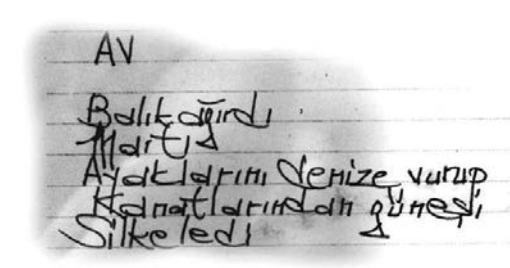 AV
Balık ağırdı
Martı
Ayaklarını denize vurup
Kanatlarından güneşi
Silkeledi